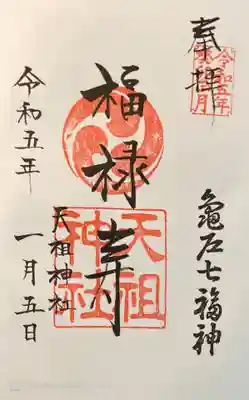 奉拝
令和五年
亀戸七福神
福禄寿
天祖神社
天祖神社
令和五年
一月五日